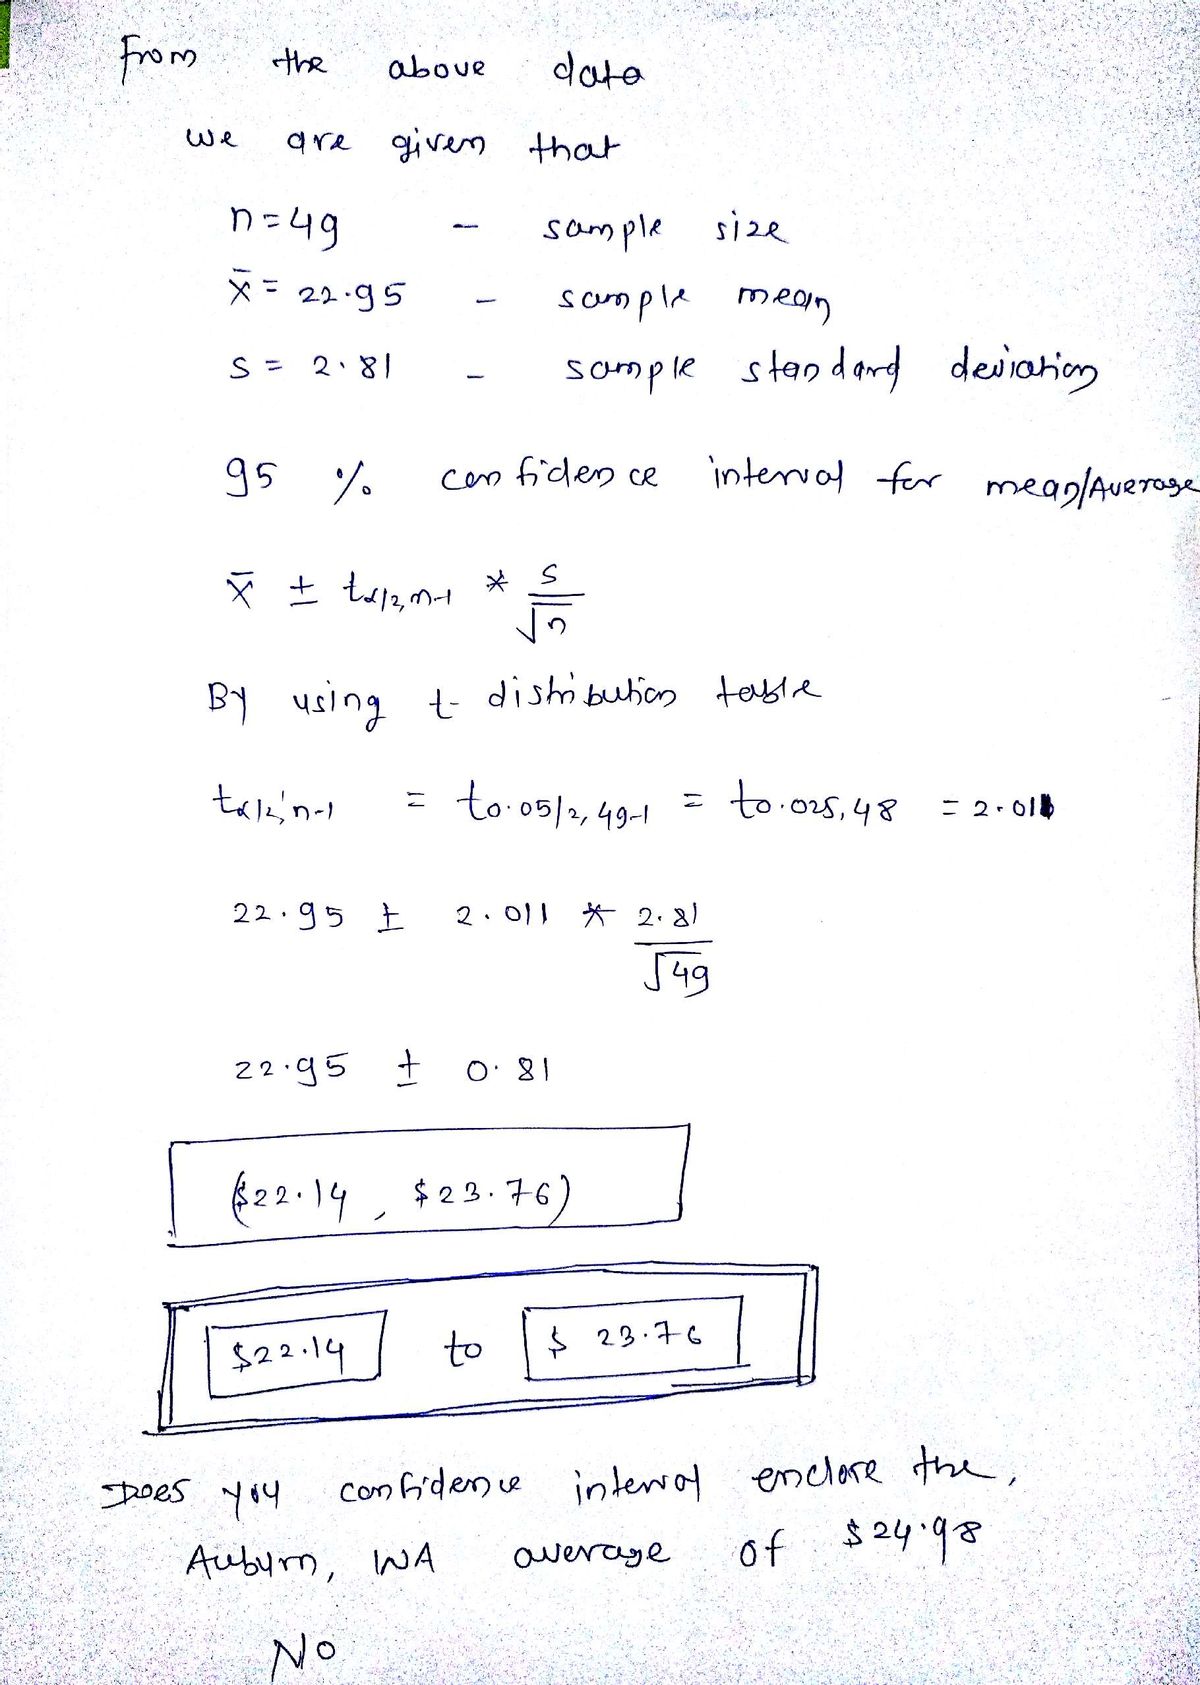 From the above data
we are given that
n = 49 - sample size
x̄ = 22.95 - sample mean
S = 2.81 - sample standard deviation
95 % confidence interval for mean/Average
x̄ ± tα/2, n-1 * S/√n
By using t- distribution table
tα/2, n-1 = t0.05/2, 49-1 = t0.025, 48 = 2.011
22.95 ± 2.011 * 2.81/√49
22.95 ± 0.81
($22.14, $23.76)
$22.14 to $ 23.76
Does you confidence interval enclose the,
Auburn, WA average of $24.98
No